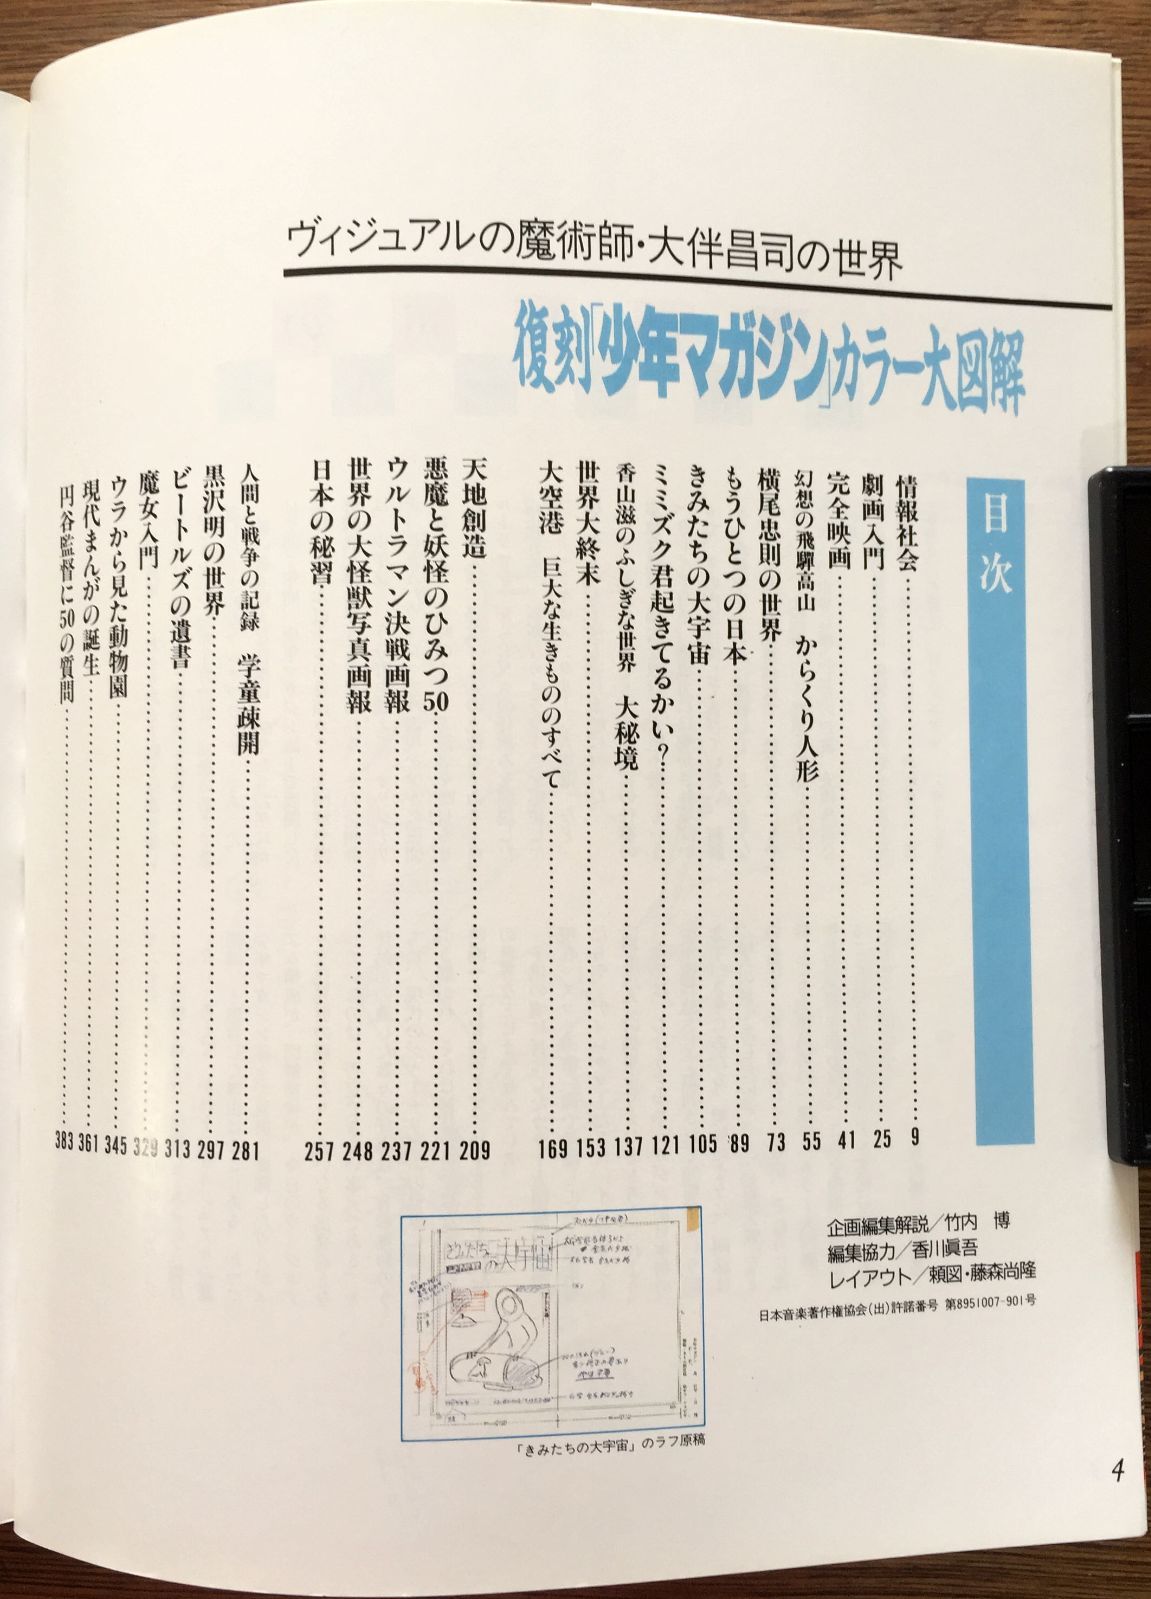 ヴィジュアルの魔術師・大伴昌司の世界
復刻「少年マガジン」カラー大図解
目次
情報社会……9
劇画入門……25
完全映画……41
幻想の飛驒高山　からくり人形……55
横尾忠則の世界……73
もうひとつの日本……89
きみたちの大宇宙……105
ミミズク君起きてるかい？……121
香山滋のふしぎな世界　大秘境……137
世界大終末……153
大空港　巨大な生きもののすべて……169
天地創造……209
悪魔と妖怪のひみつ50……221
ウルトラマン決戦画報……237
世界の大怪獣写真画報……248
日本の秘習……257
人間と戦争の記録　学童疎開……281
黒沢明の世界……297
ビートルズの遺書……313
魔女入門……329
ウラから見た動物園……345
現代まんがの誕生……361
円谷監督に50の質問……383
企画編集解説／竹内　博
編集協力／香川眞吾
レイアウト／頼図・藤森尚隆
日本音楽著作権協会(出)許諾番号 第8951007-901号
きみたちの大宇宙
「きみたちの大宇宙」のラフ原稿
4